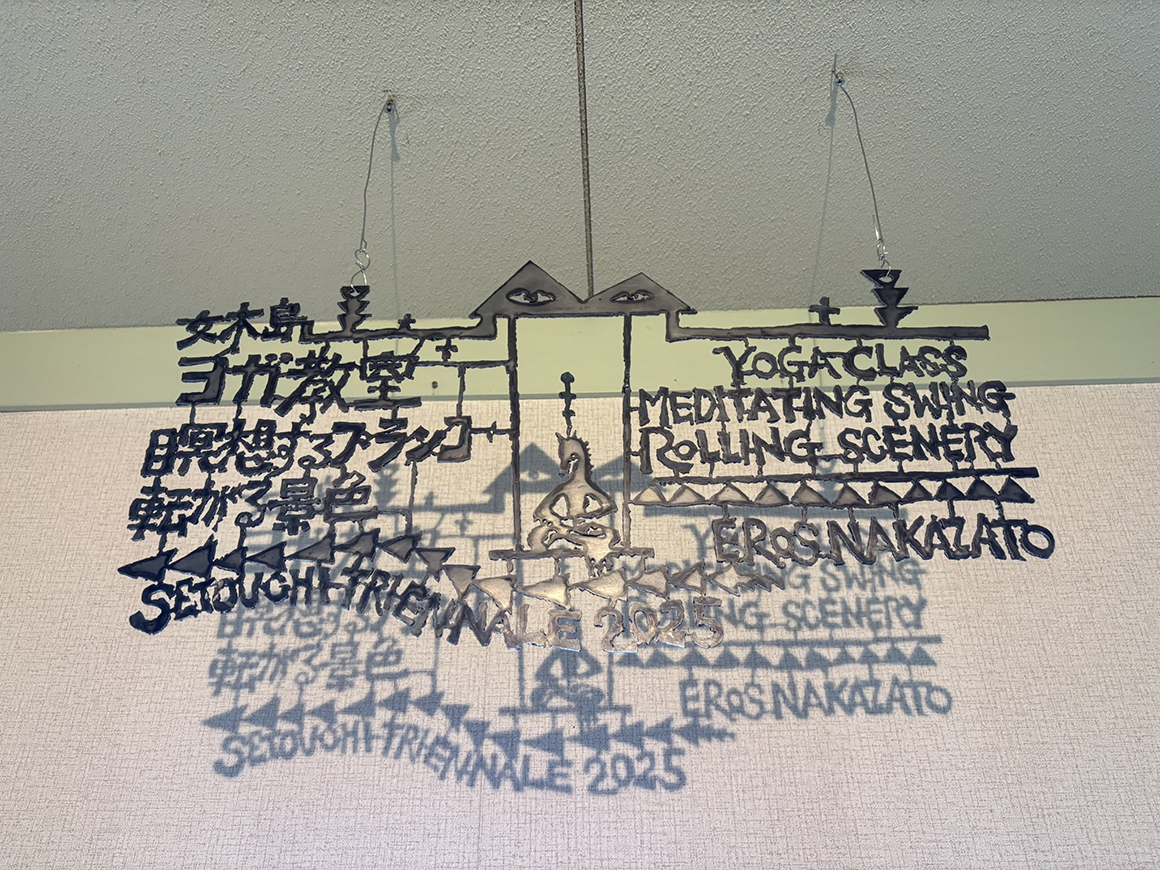 女木島
ヨガ教室
瞑想するブランコ
転がる景色
YOGA CLASS
MEDITATING SWING
ROLLING SCENERY
EROS NAKAZATO
SETOUCHI TRIENNALE 2025